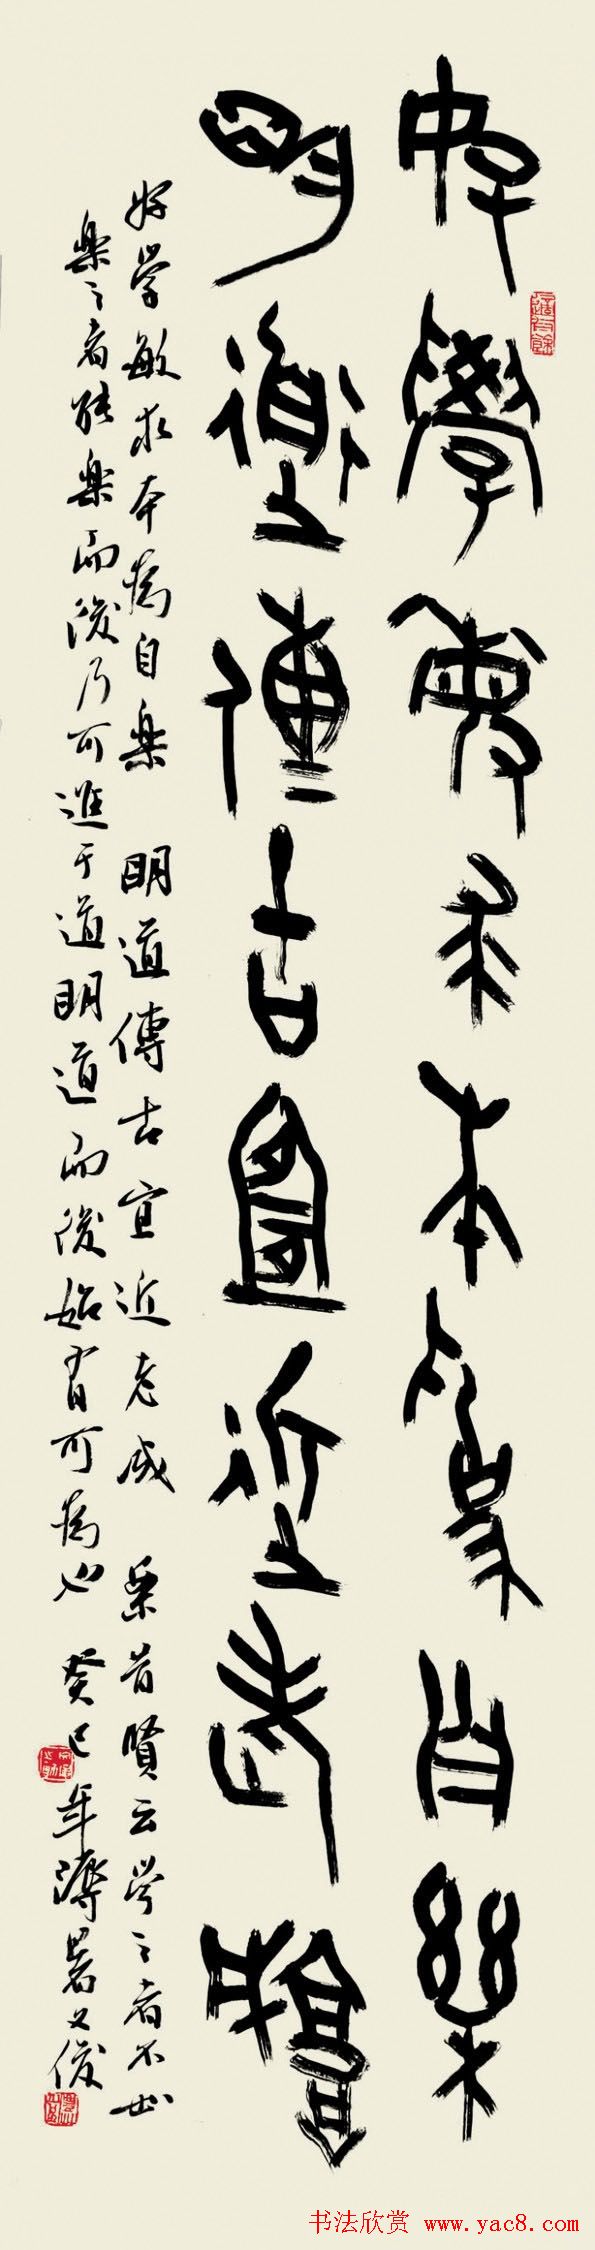 好學敏求本為自樂
明道傳古宜近老成
好学敏求本為自楽 明道傳古宜近老成 昔賢云学之者不如
楽之者能楽而後乃可進于道明道而後始有可為也 癸巳年溽暑又俊
书法欣赏 www.yac8.com